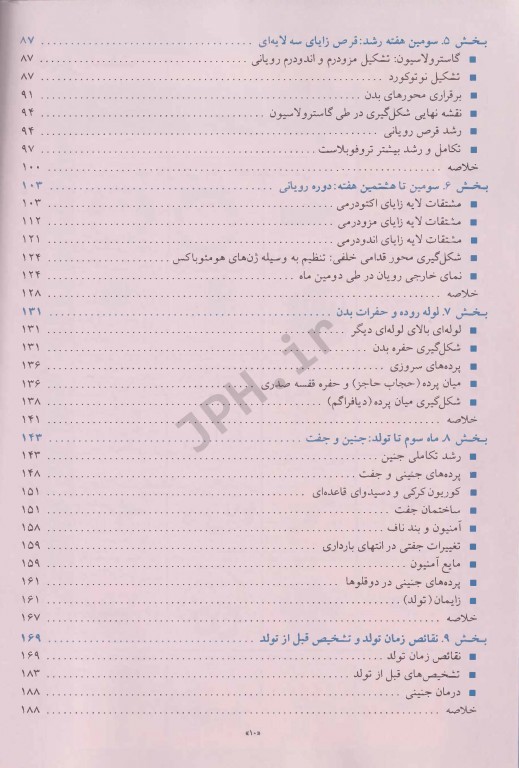 بخش ۵. سومین هفته رشد: قرص زایای سه لایه‌ای ........ ۸۷
■ گاسترولاسیون: تشکیل مزودرم و اندودرم رویانی ........ ۸۷
■ تشکیل نوتوکورد ........ ۸۷
■ برقراری محورهای بدن ........ ۹۱
■ نقشه نهایی شکل‌گیری در طی گاسترولاسیون ........ ۹۴
■ رشد قرص رویانی ........ ۹۴
■ تکامل و رشد بیشتر تروفوبلاست ........ ۹۷
خلاصه ........ ۱۰۰
بخش ۶. سومین تا هشتمین هفته: دوره رویانی ........ ۱۰۳
■ مشتقات لایه زایای اکتودرمی ........ ۱۰۳
■ مشتقات لایه زایای مزودرمی ........ ۱۱۲
■ مشتقات لایه زایای اندودرمی ........ ۱۲۱
■ شکل‌گیری محور قدامی خلفی: تنظیم به وسیله ژن‌های هومئوباکس ........ ۱۲۴
■ نمای خارجی رویان در طی دومین ماه ........ ۱۲۴
خلاصه ........ ۱۲۸
بخش ۷. لوله روده و حفرات بدن ........ ۱۳۱
■ لوله‌ای بالای لوله‌ای دیگر ........ ۱۳۱
■ شکل‌گیری حفره بدن ........ ۱۳۱
■ پرده‌های سروزی ........ ۱۳۶
■ میان پرده (حجاب حاجز) و حفره قفسه صدری ........ ۱۳۶
■ شکل‌گیری میان پرده (دیافراگم) ........ ۱۳۸
خلاصه ........ ۱۴۱
بخش ۸. ماه سوم تا تولد: جنین و جفت ........ ۱۴۳
■ رشد تکاملی جنین ........ ۱۴۳
■ پرده‌های جنینی و جفت ........ ۱۴۸
■ کوریون کرکی و دسیدوای قاعده‌ای ........ ۱۵۱
■ ساختمان جفت ........ ۱۵۱
■ آمنیون و بند ناف ........ ۱۵۸
■ تغییرات جفتی در انتهای بارداری ........ ۱۵۹
■ مایع آمنیون ........ ۱۵۹
■ پرده‌های جنینی در دوقلوها ........ ۱۶۱
■ زایمان (تولد) ........ ۱۶۱
خلاصه ........ ۱۶۷
بخش ۹. نقائص زمان تولد و تشخیص قبل از تولد ........ ۱۶۹
■ نقائص زمان تولد ........ ۱۶۹
■ تشخیص‌های قبل از تولد ........ ۱۸۳
■ درمان جنینی ........ ۱۸۸
خلاصه ........ ۱۸۸
«۱۰»
JPH.ir